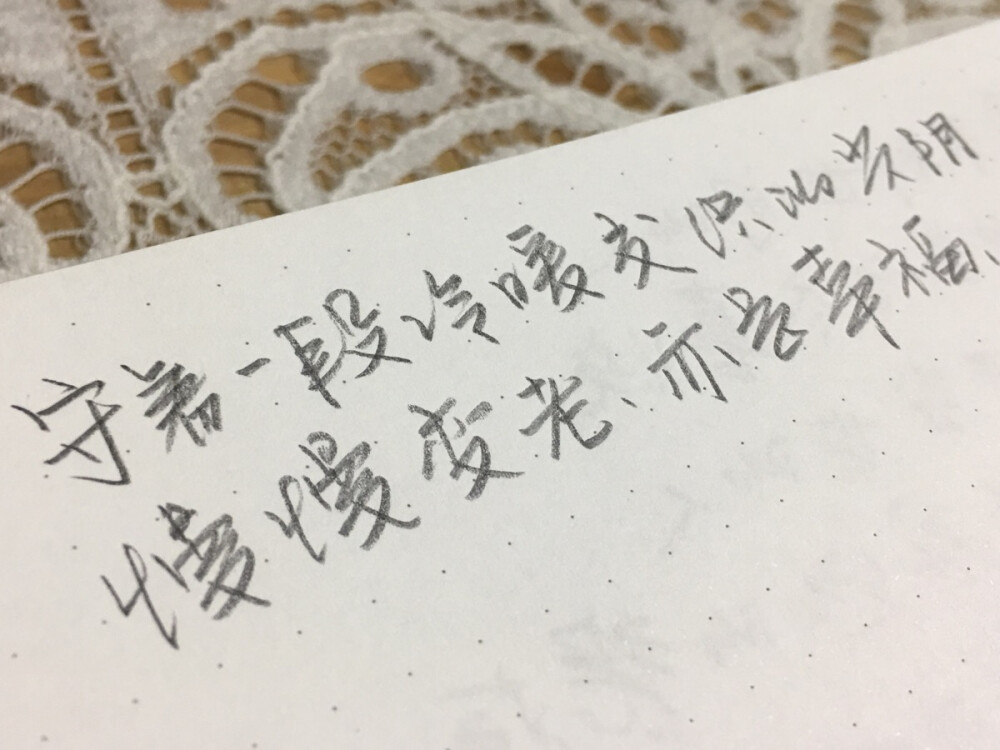 守着一段冷暖交织的光阴
慢慢变老、亦是幸福、